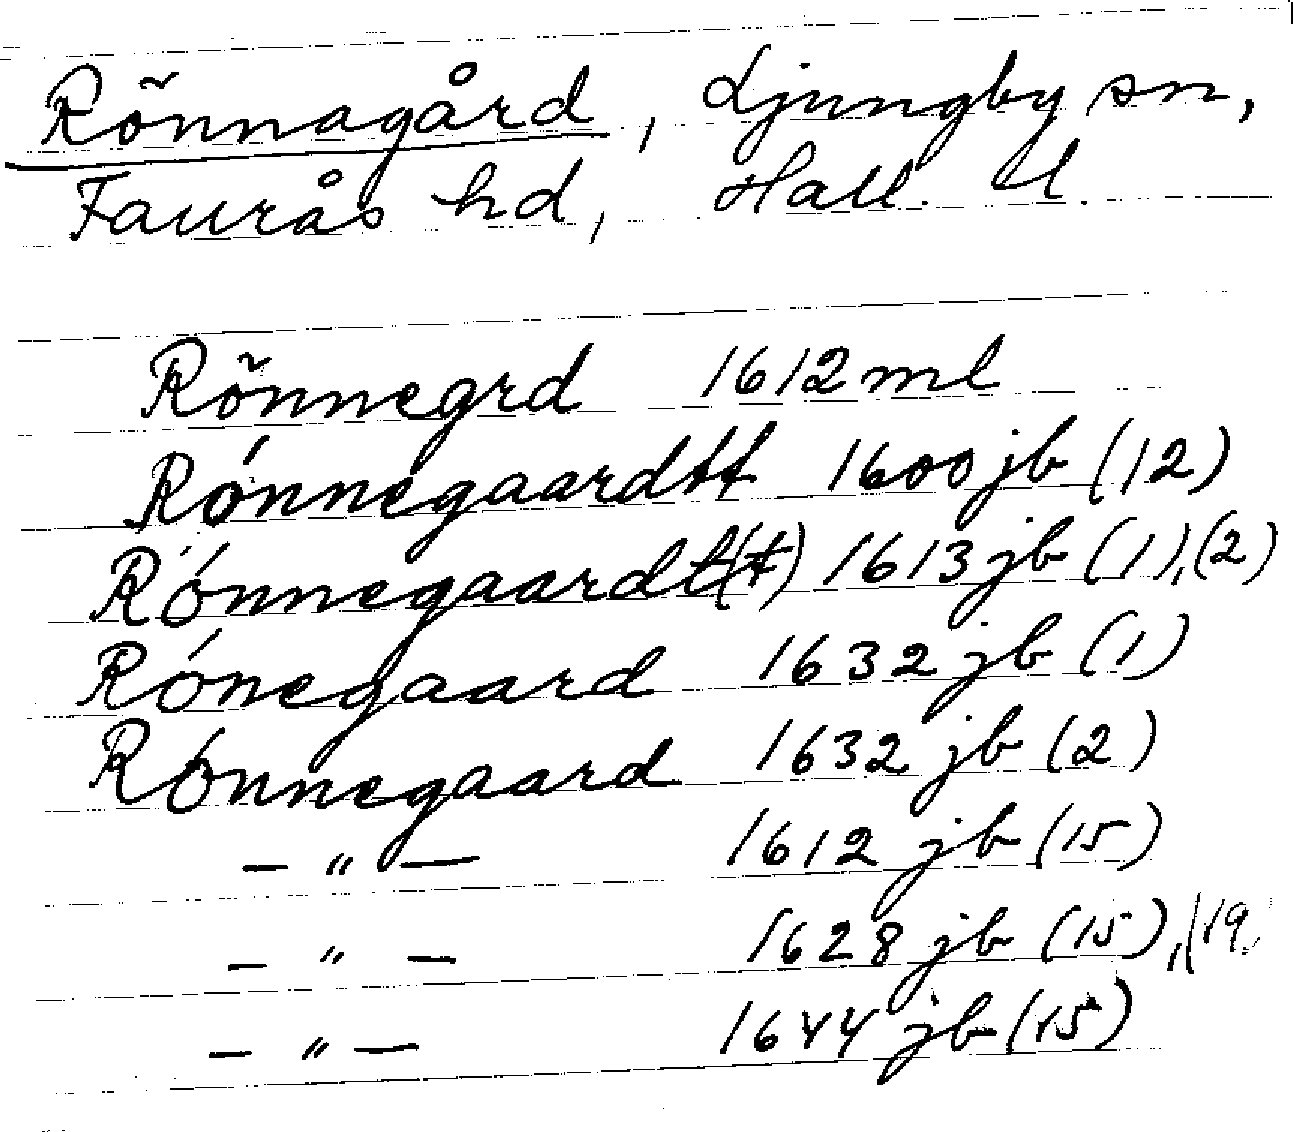 Rõnnagård, Ljungby sn,
Faurås hd, Hall. l.
Rõnnegrd 1612 ml
Rónnegaardtt 1600 jb (12)
Rónnegaardt(t) 1613 jb (1), (2)
Rónegaard 1632 jb (1)
Rónnegaard 1632 jb (2)
— " — 1612 jb (15)
— " — 1628 jb (15), (19
— " — 1644 jb (15)